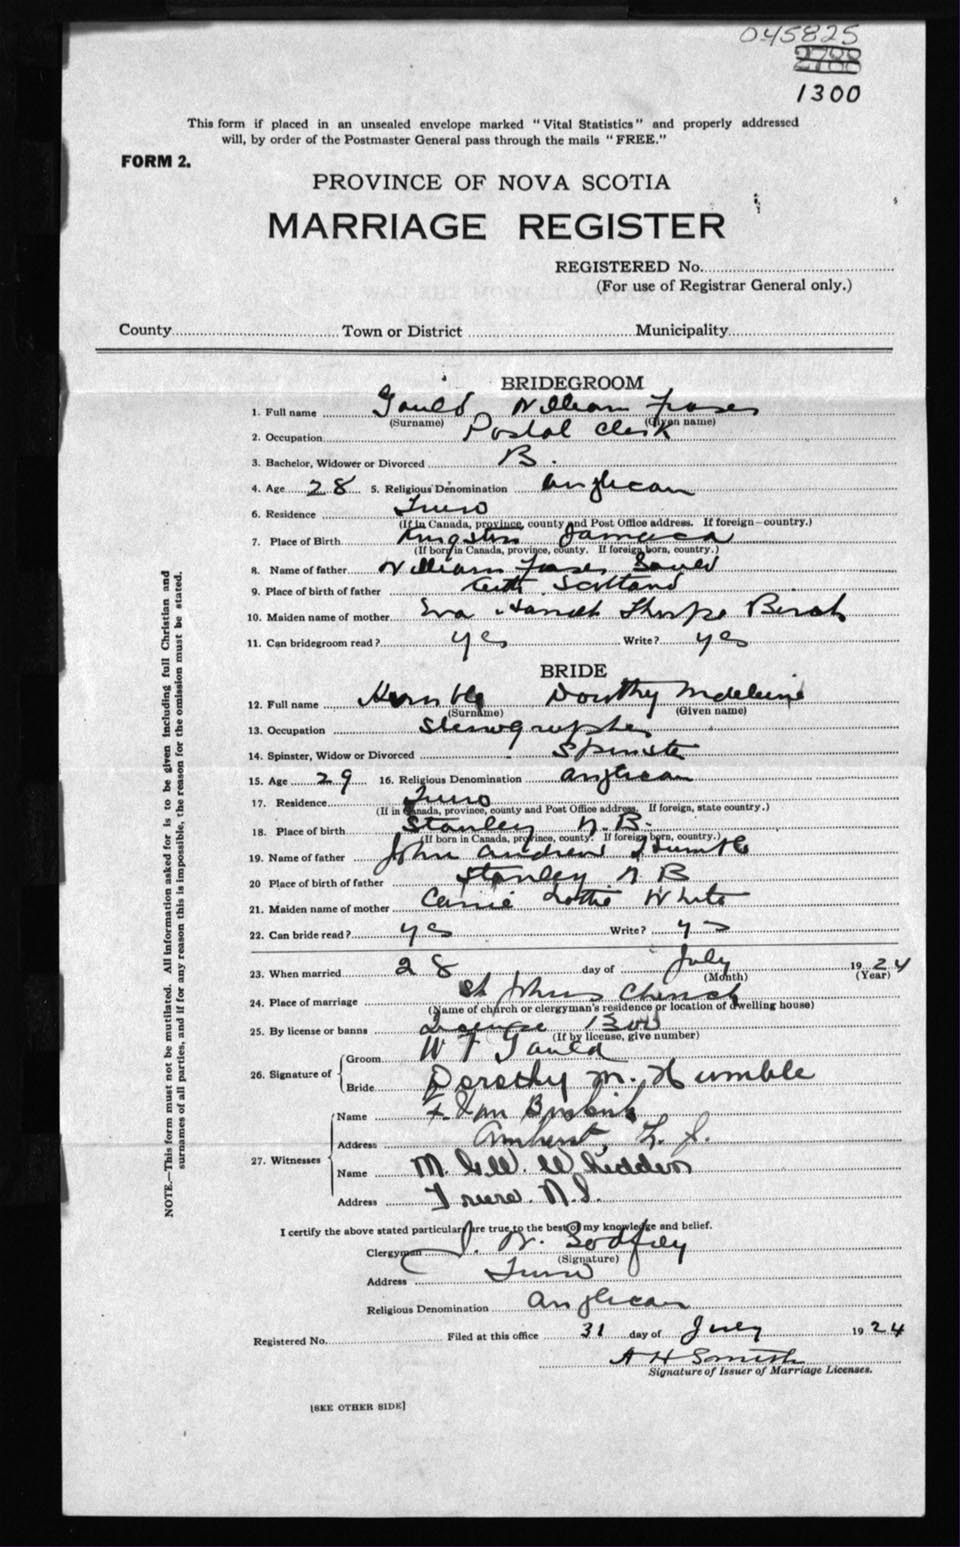 045825
2788
1300
This form if placed in an unsealed envelope marked "Vital Statistics" and properly addressed
will, by order of the Postmaster General pass through the mails "FREE."
FORM 2.
PROVINCE OF NOVA SCOTIA
MARRIAGE REGISTER
REGISTERED No.
(For use of Registrar General only.)
County Town or District Municipality
BRIDEGROOM
1. Full name Gauld William Fraser
(Surname) (Given name)
2. Occupation Postal Clerk
3. Bachelor, Widower or Divorced B.
4. Age 28 5. Religious Denomination Anglican
6. Residence Truro
(If in Canada, province, county and Post Office address. If foreign—country.)
7. Place of Birth Kingston Jamaica
(If born in Canada, province, county. If foreign born, country.)
8. Name of father William Fraser Gauld
9. Place of birth of father Leith Scotland
10. Maiden name of mother Eva Thorpe
11. Can bridegroom read? yes Write? yes
BRIDE
12. Full name Humble Dorothy Madeleine
(Surname) (Given name)
13. Occupation Stenographer
14. Spinster, Widow or Divorced Spinster
15. Age 29 16. Religious Denomination Anglican
17. Residence Truro
(If in Canada, province, county and Post Office address. If foreign, state country.)
18. Place of birth Stanley N.B.
(If born in Canada, province, county. If foreign born, country.)
19. Name of father John Andrew Humble
20 Place of birth of father Stanley N B
21. Maiden name of mother Carrie Lottie White
22. Can bride read? yes Write? yes
23. When married 28 day of July 1924
(Month) (Year)
24. Place of marriage St Johns Church
(Name of church or clergyman's residence or location of dwelling house)
25. By license or banns License 1300
(If by license, give number)
26. Signature of
Groom W F Gauld
Bride Dorothy M. Humble
27. Witnesses
Name
Address Amherst, N.S.
Name M. Whidden
Address Truro N.S.
I certify the above stated particulars are true to the best of my knowledge and belief.
Clergyman J. W. Godfrey
(Signature)
Address Truro
Religious Denomination Anglican
Registered No. Filed at this office 31 day of July 1924
A H Smith
Signature of Issuer of Marriage Licenses.
[SEE OTHER SIDE]
NOTE.—This form must not be mutilated. All information asked for is to be given including full Christian and
surnames of all parties, and if for any reason this is impossible, the reason for the omission must be stated.